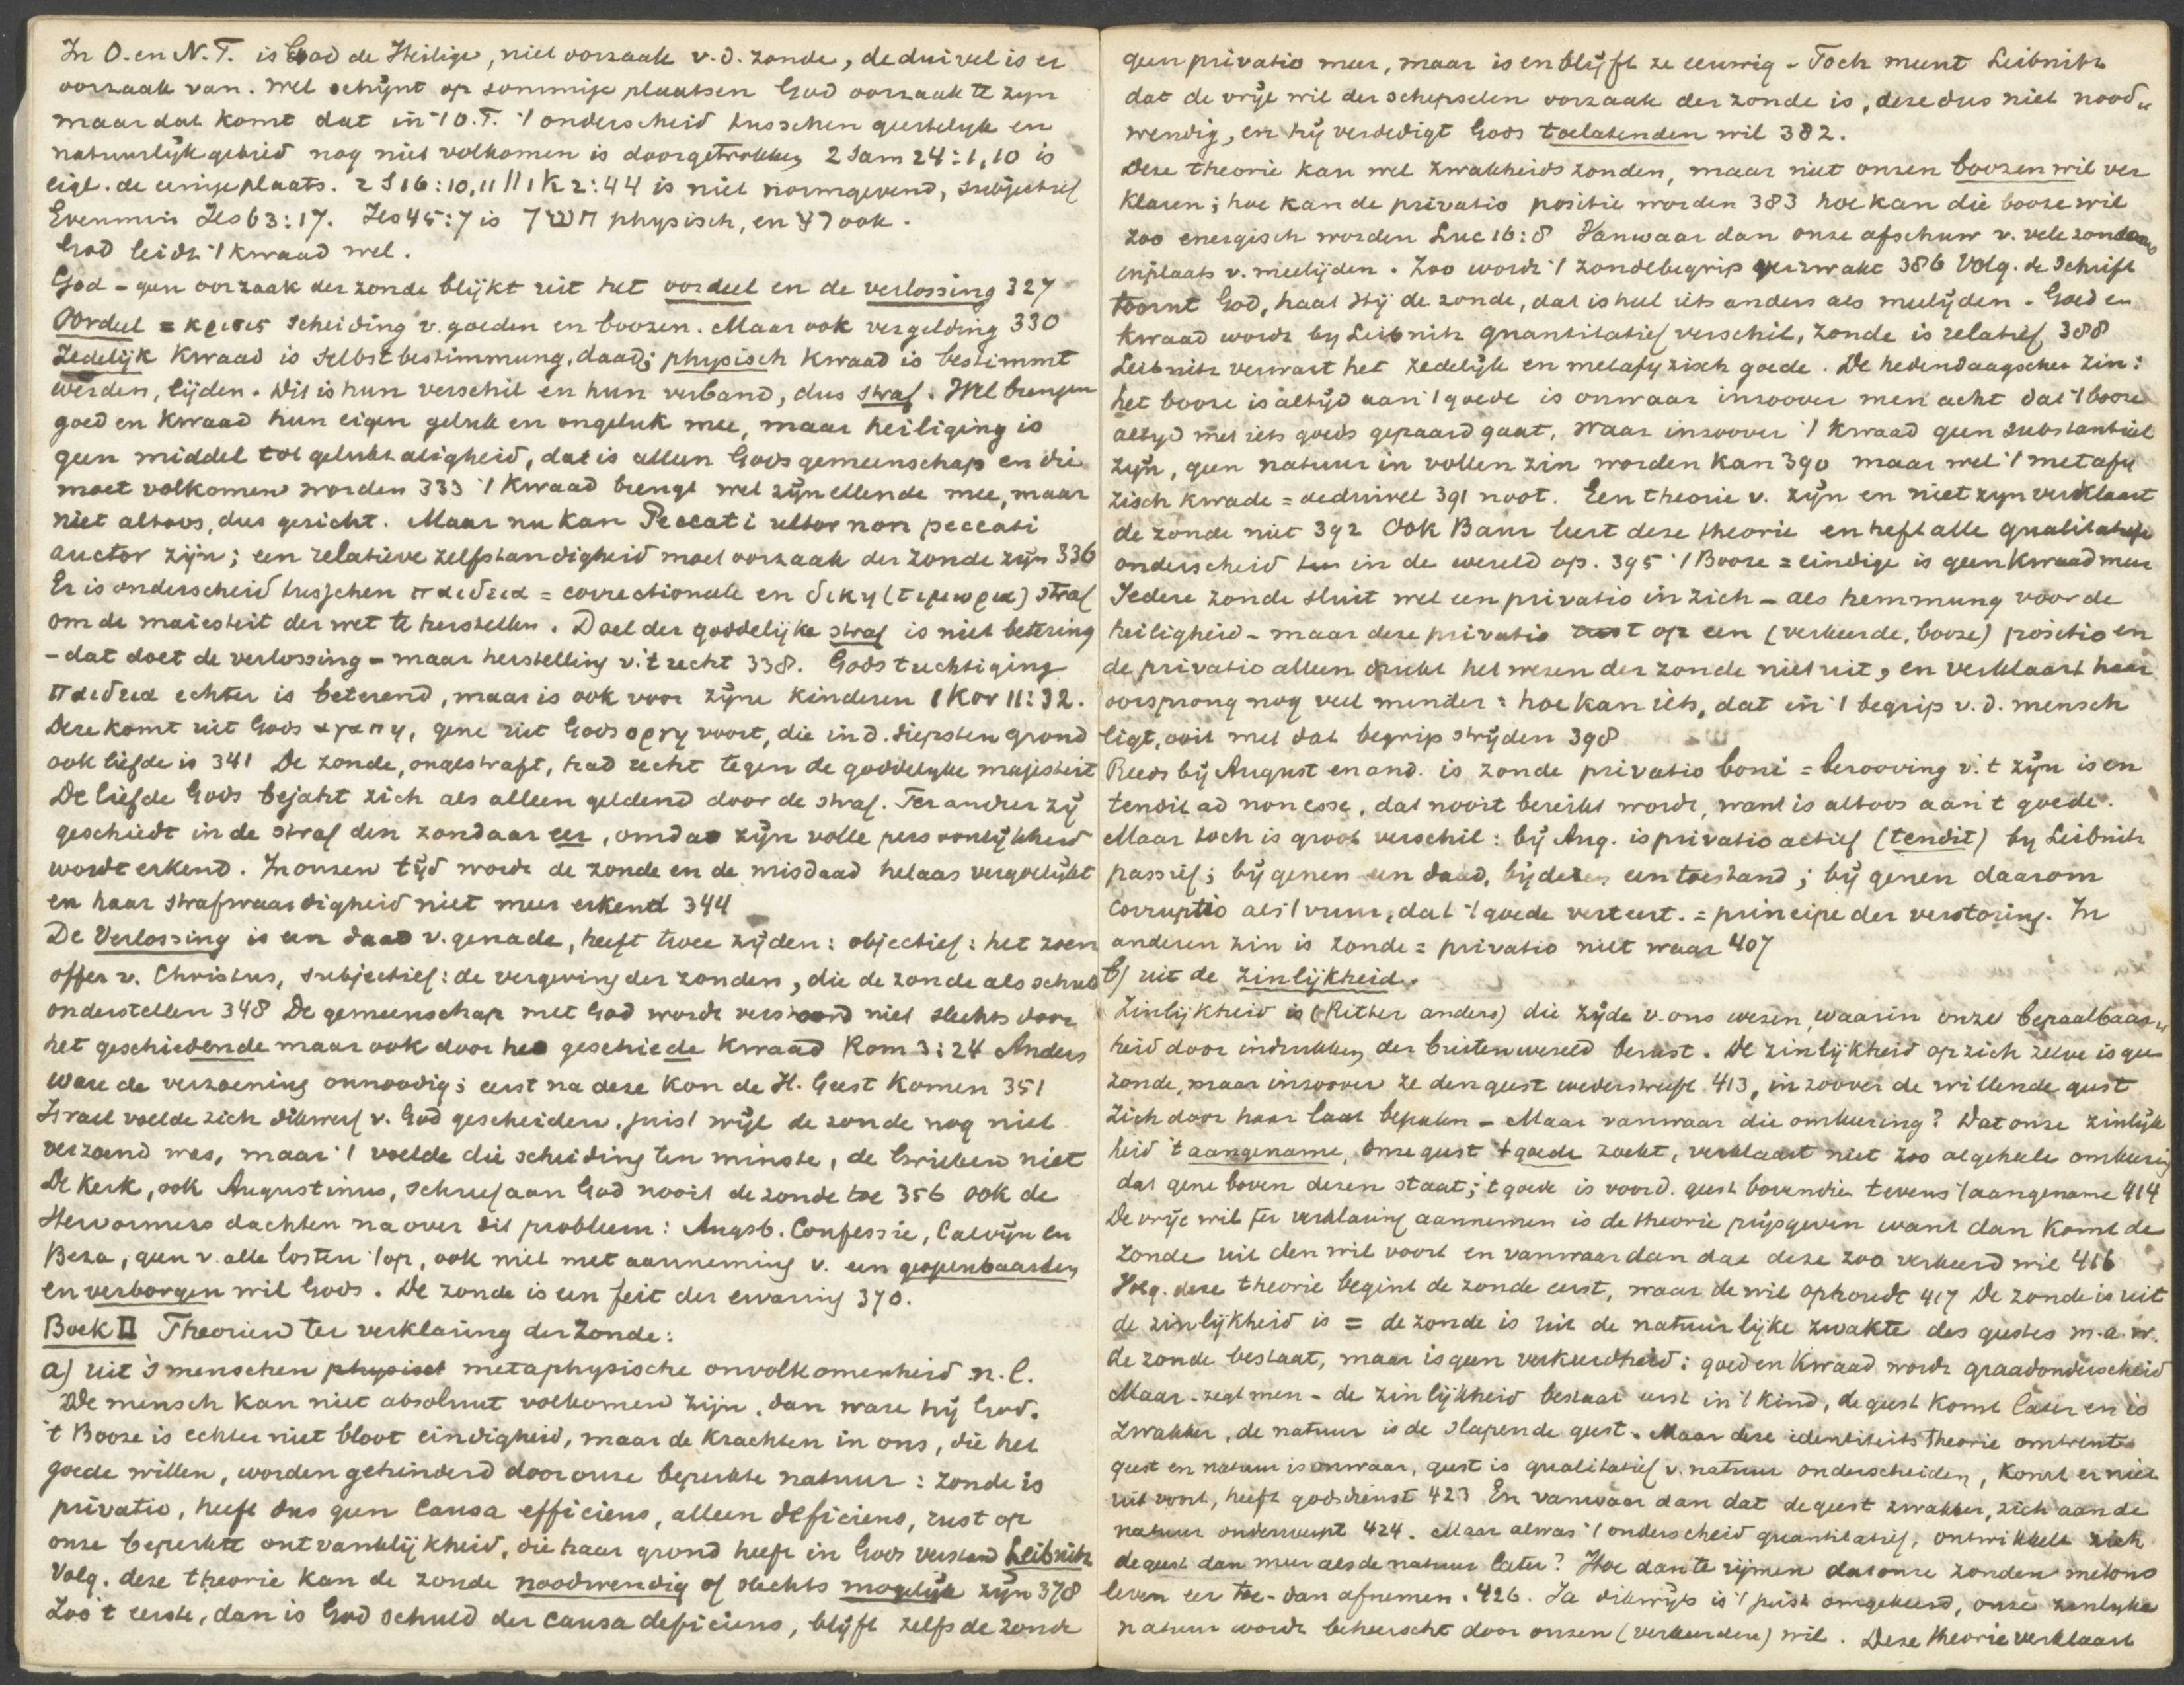 In O. en N.T. is God de Heilige, niet oorzaak v.d. zonde, de duivel is er
oorzaak van. Wel schijnt op sommige plaatsen God oorzaak te zyn
maar dat komt dat in 't O.T. 't onderscheid tusschen geestelyk en
natuurlijk gebied nog niet volkomen is doorgetrokken 2 Sam 24:1, 10 is
eigl. de eenige plaats. 2 S 16:10, 11 || 1 K 2:44 is niet normgevend, subjectief
Evenmin Jes 63:17. Jes 45:7 is חשך physisch, en רע ook.
God leidt 't kwaad wel.
God - geen oorzaak der zonde blijkt uit het oordeel en de verlossing 327
Oordeel = κρισις scheiding v. goeden en boozen. Maar ook vergelding 330
Zedelijk kwaad is selbstbestimmung, daad; physisch kwaad is bestimmt
werden, lijden. Dit is hun verschil en hun verband, dus straf. Wel brengen
goed en kwaad hun eigen geluk en ongeluk mee, maar heiliging is
geen middel tot gelukzaligheid, dat is alleen Gods gemeenschap en die
moet volkomen worden 333 't Kwaad brengt wel zijn ellende mee, maar
niet altoos, dus gericht. Maar nu kan Peccati ultor non peccati
auctor zijn; een relatieve zelfstandigheid moet oorzaak der zonde zijn 336
Er is onderscheid tusschen παιδεια = correctioneele en δικη (τιμωρια) straf
om de majesteit der wet te herstellen. Doel der goddelijke straf is niet betering
- dat doet de verlossing - maar herstelling v. 't recht 338. Gods tuchtiging
παιδεια echter is beterend, maar is ook voor zijne kinderen 1 Kor 11:32.
Deze komt uit Gods αγαπη, gene uit Gods οργη voort, die in d. diepsten grond
ook liefde is 341 De zonde, ongestraft, had recht tegen de goddelyke majesteit
De liefde Gods bejaht zich als alleen geldend door de straf. Ter andrer zij
geschiedt in de straf den zondaar eer, omdat zijn volle persoonlijkheid
wordt erkend. In onzen tijd wordt de zonde en de misdaad helaas vergoelijkt
en haar strafwaardigheid niet meer erkend 344
De Verlossing is een daad v. genade, heeft twee zijden: objectief: het zoen
offer v. Christus, subjectief: de vergeving der zonden, die de zonde als schuld
onderstellen 348 De gemeenschap met God wordt verstoord niet slechts door
het geschiedende maar ook door het geschiede kwaad Rom 3:24 Anders
ware de verzoening onnoodig; eerst na deze kon de H. Geest komen 351
Israel voelde zich dikwerf v. God gescheiden, juist wijl de zonde nog niet
verzoend was, maar 't voelde die scheiding ten minste, de Grieken niet
De Kerk, ook Augustinus, schreef aan God nooit de zonde toe 356 ook de
Hervormers dachten na over dit probleem: Augsb. Confessie, Calvijn en
Beza, geen v. alle losten 't op, ook niet met aanneming v. een geopenbaarden
en verborgen wil Gods. De zonde is een feit der ervaring 370.
Boek II Theorieen ter verklaring der Zonde:
a) uit 's menschen physisch metaphysische onvolkomenheid n.l.
De mensch kan niet absoluut volkomen zijn, dan ware hij God.
't Booze is echter niet bloot eindigheid, maar de krachten in ons, die het
goede willen, worden gehinderd door onze beperkte natuur: zonde is
privatio, heeft dus geen causa efficiens, alleen deficiens, rust op
onze beperkte ontvanklijkheid, die haar grond heeft in Gods verstand Leibnitz
Volg. deze theorie kan de zonde noodwendig of slechts mogelijk zijn 378
Zoo 't eerste, dan is God schuld der causa deficiens, blijft zelfs de zonde
geen privatio meer, maar is en blijft ze eeuwig - Toch meent Leibnitz
dat de vrije wil der schepselen oorzaak der zonde is, deze dus niet nood„
wendig, en hij verdedigt Gods toelatenden wil 382.
Deze theorie kan wel zwakheidszonden, maar niet onzen boozen wil ver
klaren; hoe kan de privatio positie worden 383 hoe kan die booze wil
zoo energisch worden Luc 16:8 Vanwaar dan onze afschuw v. vele zondaars
inplaats v. meelijden. Zoo wordt 't zondebegrip verzwakt 386 Volg. de Schrift
toornt God, haat Hij de zonde, dat is heel iets anders als meelijden. Goed en
kwaad wordt by Leibnitz quantitatief verschil, zonde is relatief 388
Leibnitz verwart het zedelijk en metafyzisch goede. De hedendaagschen zin:
het booze is altijd aan 't goede is onwaar inzoover men acht dat 't booze
altyd met iets goeds gepaard gaat, waar inzoover 't kwaad geen substantieel
zijn, geen natuur in vollen zin worden kan 390 maar wel 't metafy
zisch kwade = de duivel 391 noot. Een theorie v. zijn en niet zyn verklaart
de zonde niet 392 Ook Baur leert deze theorie en heft alle qualitatief
onderscheid in de wereld op. 395 't Booze = eindige is geen kwaad meer
Iedere zonde sluit wel een privatio in zich - als hemmung voor de
heiligheid - maar deze privatio rust op een (verkeerde, booze) positio en
de privatio alleen drukt het wezen der zonde niet uit, en verklaart haar
oorsprong nog veel minder: hoe kan iets, dat in 't begrip v.d. mensch
ligt, ooit met dat begrip strijden 398
Reeds bij August en and. is zonde privatio boni = berooving v. 't zijn is en
tendit ad non esse, dat nooit bereikt wordt, want is altoos aan 't goede.
Maar toch is groot verschil: bij Aug. is privatio actief (tendit) by Leibnitz
passief; bij genen een daad, bij dezen een toestand; bij genen daarom
corruptio als 't vuur, dat 't goede verteert. = principe der verstoring. In
anderen zin is zonde = privatio niet waar 407
b) uit de zinlijkheid.
Zinlijkheid is (Ritter anders) die zijde v. ons wezen, waarin onze bepaalbaar„
heid door indrukken der buitenwereld berust. De zinlijkheid op zich zelve is geen
zonde, maar inzoover ze den geest wederstreeft 413, in zoover de willende geest
zich door haar laat bepalen - Maar vanwaar die omkeering? Dat onze zinlijk
heid 't aangename, onze geest 't goede zoekt, verklaart niet zoo algeheele omkeering
dat gene boven dezen staat; 't goede is voor d. geest bovendien tevens 't aangename 414
De vrije wil ter verklaring aannemen is de theorie prijsgeven want dan komt de
zonde uit den wil voort en vanwaar dan dat deze zoo verkeerd wil 416
Volg. deze theorie begint de zonde eerst, waar de wil ophoudt 417 De zonde is uit
de zinlijkheid is = de zonde is uit de natuurlijke zwakte des geestes m.a.w.
de zonde bestaat, maar is geen verkeerdheid: goed en kwaad wordt graadonderscheid
Maar - zegt men - de zinlijkheid bestaat eerst in 't kind, de geest komt later en is
zwakker, de natuur is de slapende geest. Maar deze identiteitstheorie omtrent
geest en natuur is onwaar, geest is qualitatief v. natuur onderscheiden, komt er niet
uit voort, heeft godsdienst 423 En vanwaar dan dat de geest zwakker, zich aan de
natuur onderwerpt 424. Maar al was 't onderscheid quantitatief, ontwikkelt zich
de geest dan meer als de natuur later? Hoe dan te rijmen dat onze zonden met ons
leven eer toe- dan afnemen. 426. Ja dikwijls is 't juist omgekeerd, onze zinlyke
natuur wordt beheerscht door onzen (verkeerden) wil. Deze theorie verklaart